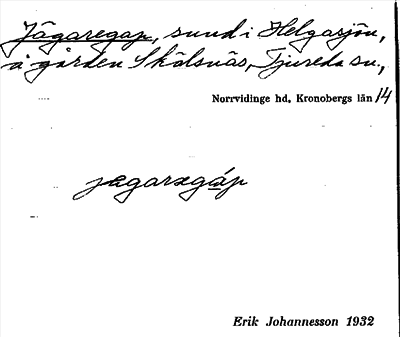 Jägaregap, sund i Helgasjön,
å gården Skälsnäs, Tjureda sn,
Norrvidinge hd. Kronobergs län 14
jægarægáp
Erik Johannesson 1932